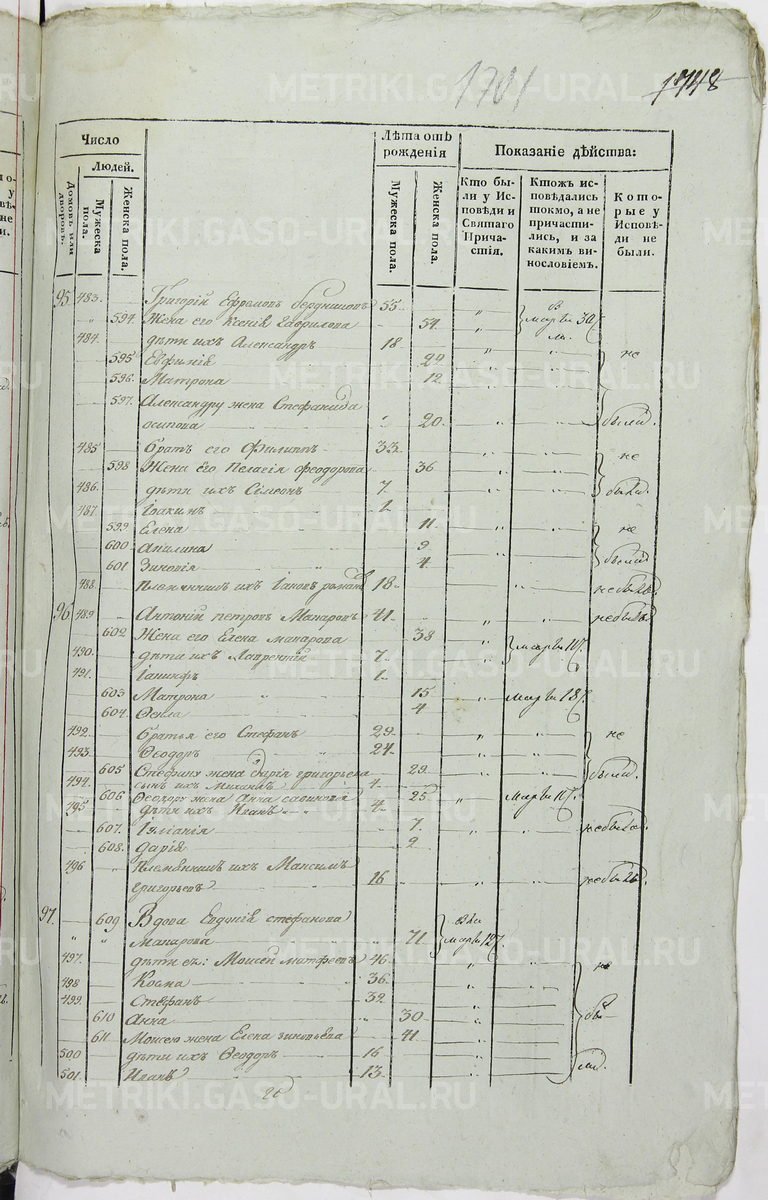 1701
1748
Число
Людей.
Домовъ или дворовъ.
Мужеска пола.
Женска пола.
Лѣта отъ рожденія
Мужеска пола.
Женска пола.
Показаніе дѣйства:
Кто бы-
ли у Ис-
повѣди и
Святаго
Прича-
стія.
Ктожъ ис-
повѣдались
токмо, а не
причасти-
лись, и за
какимъ ви-
нословіемъ.
Кото-
рые у
Исповѣ-
ди не
были.
95 483. Григорій Ефремовъ Бердниковъ 55
594. Жена его Ксенія Гаврилова 54. марта 30
484. дѣти ихъ Александръ 18
595 Евфимія 22 не
596. Матрона 12
597. Александру жена Стефанида
осипова 20. были.
485 братъ его Филиппъ 33 не
598 Жена его Пелагія Феодорова 36
486. дѣти ихъ Сѵмеонъ 7 были.
487. Іоакимъ 1
599 Елена 11 не
600 Апилина 9 были
601 Зиновія 4
488. племянникъ ихъ Іаковъ романовъ 18 небылъ.
96 489 Антоній петровъ Макаровъ 41 небылъ
602. Жена его Елена макарова 38
490. дѣти ихъ Лаврентій 7 марта
491. Іакинфъ 1
603 Матрона 15 марта 18
604. Ѳекла 4
492. братья его Стефанъ 29 не
493. Ѳеодоръ 24
605 Стефану жена дарія григорьева 29 были.
494. сынъ ихъ Михаилъ 4
606 Ѳеодору жена Анна савинова 25 марта
495 дѣти ихъ Иванъ 4
607. Іуліанія 7. небыла.
608. дарія 2
496 племянникъ ихъ Максимъ
григорьевъ 16 небылъ.
97. 609 Вдова Евдокія стефанова
Макарова 71 марта
497. дѣти ея: Моисей матфеевъ 46 не
498 Косма 36
499. Стефанъ 32
610 Анна 30 бы-
611 Моисею жена Елена зиновьева 41
500 дѣти ихъ Ѳеодоръ 16 ли.
501. Иванъ 13
METRIKI.GASO-URAL.RU